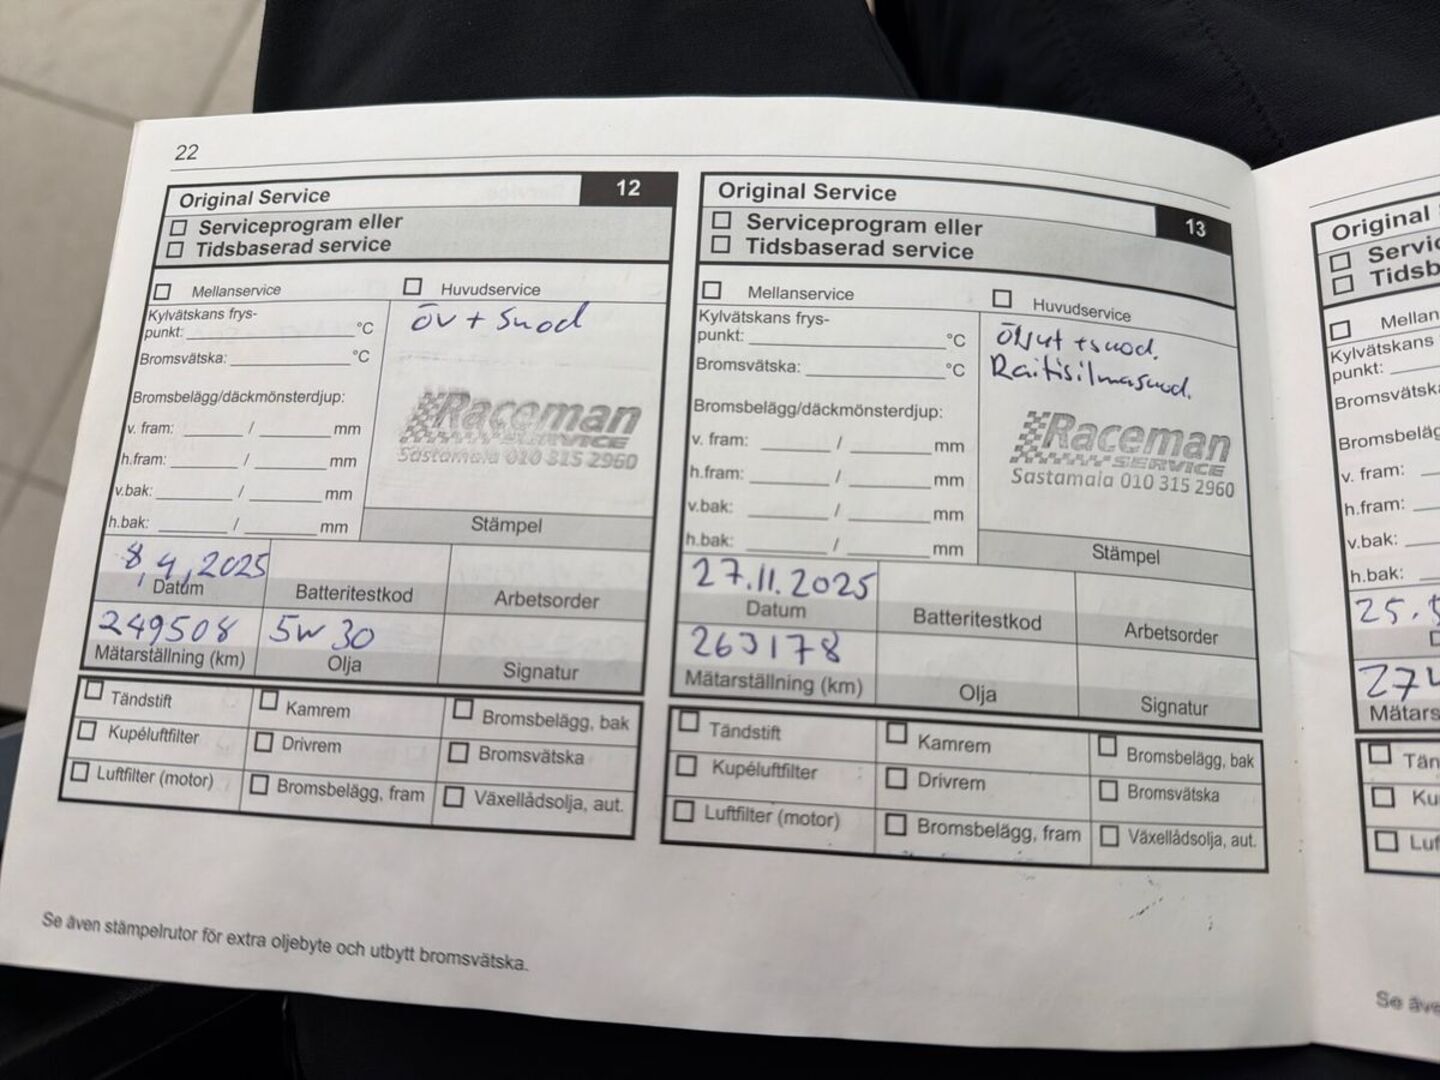 22
Original Service 12
Serviceprogram eller
Tidsbaserad service
Mellanservice
Huvudservice
Kylvätskans frys-
punkt: °C
Bromsvätska: °C
öv + suod
Bromsbelägg/däckmönsterdjup:
v. fram: / mm
h.fram: / mm
v.bak: / mm
h.bak: / mm
Raceman
SERVICE
Sastamala 010 315 2960
Stämpel
8.4.2025
Datum
Batteritestkod
Arbetsorder
249508
5W30
Mätarställning (km)
Olja
Signatur
Tändstift
Kamrem
Bromsbelägg, bak
Kupéluftfilter
Drivrem
Bromsvätska
Luftfilter (motor)
Bromsbelägg, fram
Växellådsolja, aut.
Original Service 13
Serviceprogram eller
Tidsbaserad service
Mellanservice
Huvudservice
Kylvätskans frys-
punkt: °C
Bromsvätska: °C
Öljyt + suod.
Raitisilmasuod.
Bromsbelägg/däckmönsterdjup:
v. fram: / mm
h.fram: / mm
v.bak: / mm
h.bak: / mm
Raceman
SERVICE
Sastamala 010 315 2960
Stämpel
27.11.2025
Datum
Batteritestkod
Arbetsorder
263178
Mätarställning (km)
Olja
Signatur
Tändstift
Kamrem
Bromsbelägg, bak
Kupéluftfilter
Drivrem
Bromsvätska
Luftfilter (motor)
Bromsbelägg, fram
Växellådsolja, aut.
Se även stämpelrutor för extra oljebyte och utbytt bromsvätska.
Original
Servic
Tidsb
Mellan
Kylvätskans
punkt:
Bromsvätsk
Bromsbeläg
v. fram:
h.fram:
v.bak:
h.bak:
25.5
D
274
Mätars
Tän
Ku
Luf
Se äve